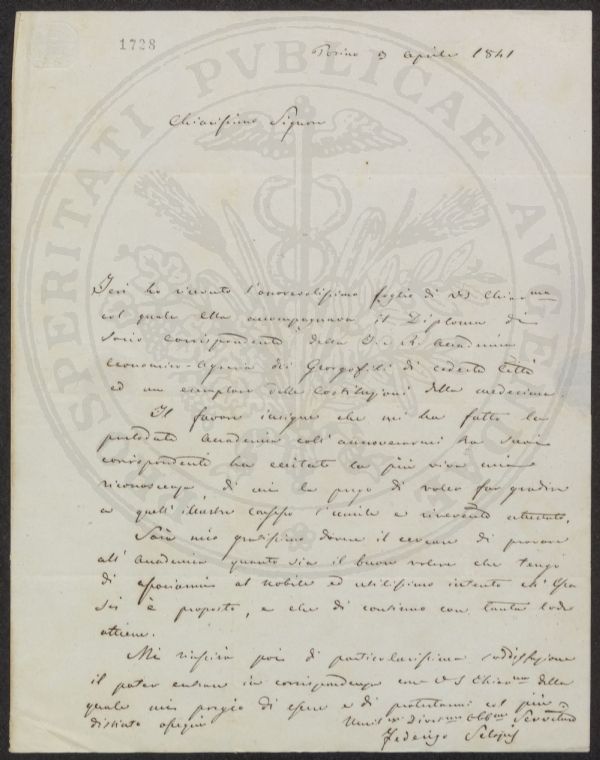 1728
Torino 3 Aprile 1841
Chiarissimo Signore
Ieri ho ricevuto l'onorevolissimo foglio di VS Chiar.ma
col quale Ella accompagnava il Diploma di
Socio corrispondente della I. e R. Accademia
Economico-Agraria dei Georgofili di codesta Città
ed un esemplare delle Costituzioni della medesima.
Il favore insigne che mi ha fatto la
prelodata Accademia coll' annoverarmi tra suoi
corrispondenti ha eccitato la più viva mia
riconoscenza di cui la prego di voler far gradire
a quell' illustre consesso l'umile e riverente attestato.
Sarà mio gratissimo dovere il cercare di provare
all' Accademia quanto sia il buon volere che tengo
di associarmi al nobile ed utilissimo intento ch' Essa
si è proposto, e che di continuo con tanta lode
ottiene.
Mi riuscirà poi di particolarissima soddisfazione
il poter entrare in corrispondenza con VS Chiar.ma della
quale mi pregio di essere e di protestarmi col più
distinto ossequio
Umil.mo Divot.mo Obb.mo Servitore
Federigo Sclopis
PROSPERITATI PVBLICAE AVGENDAE